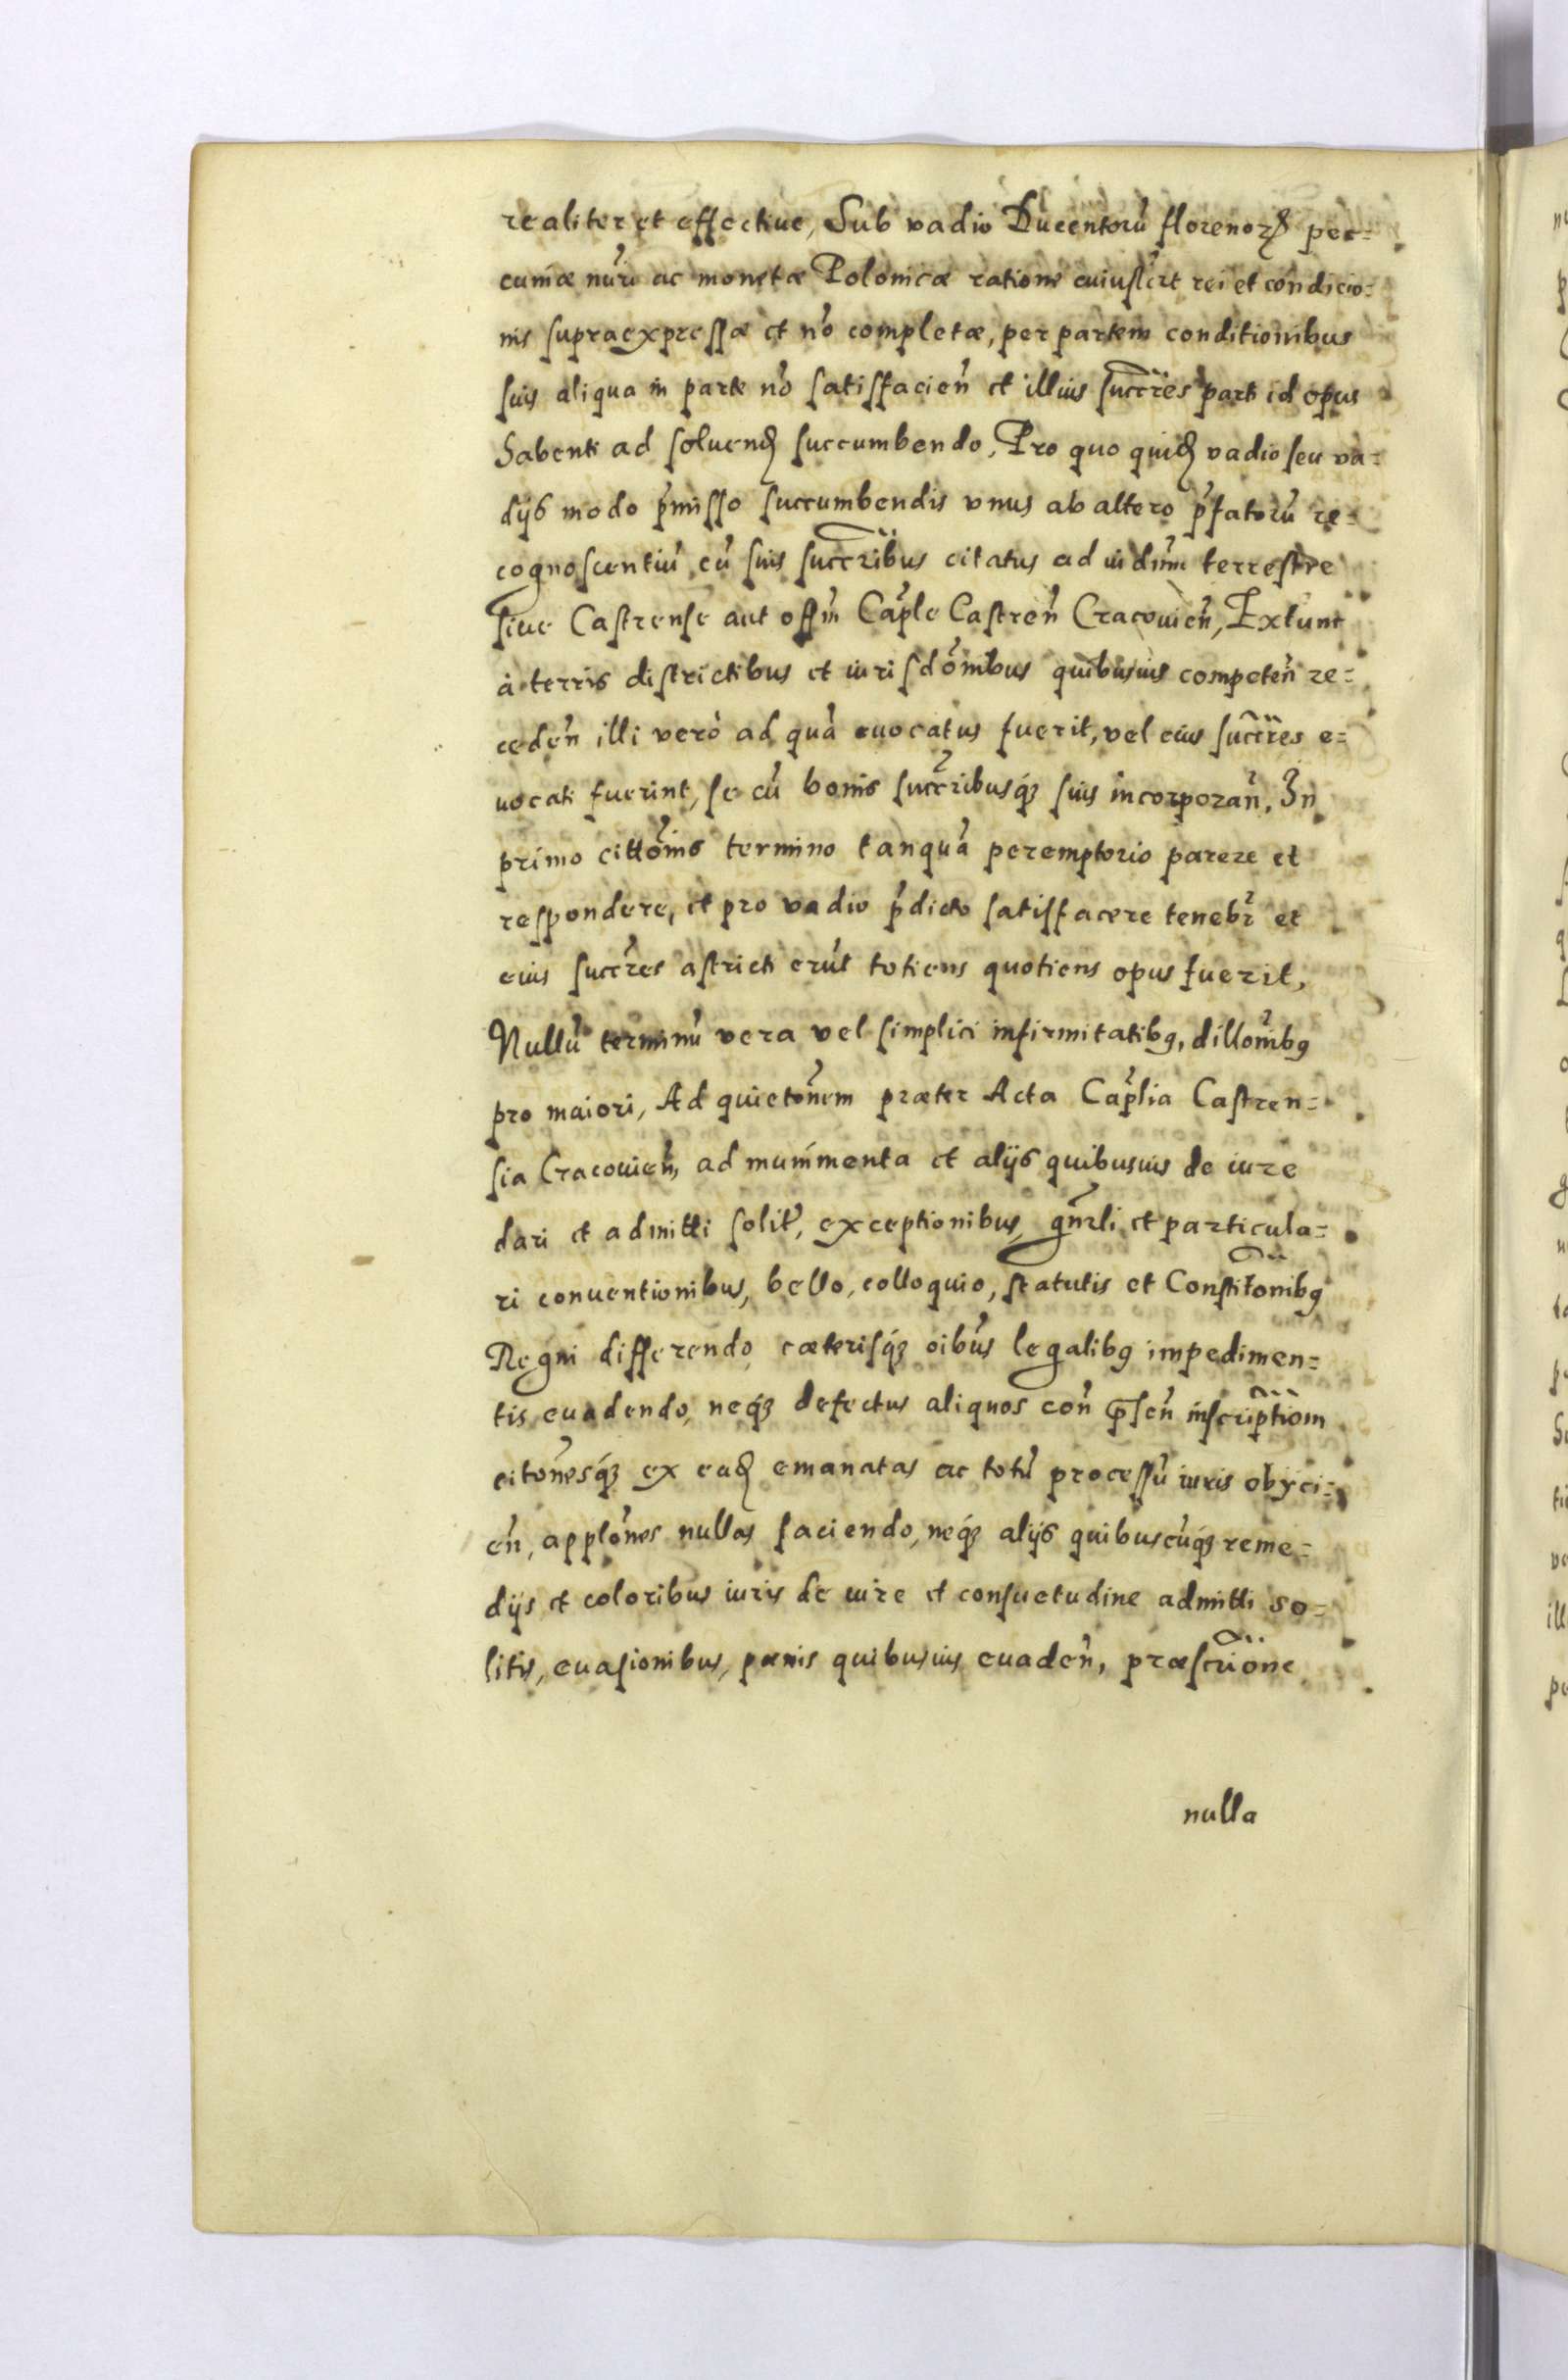 realiter et effectiue, Sub vadio Ducentorũ florenorꝝ pec=
cuniæ nũri ac monetæ Polonicæ ratione cuiuslĩbt rei et condicio=
nis supraexpressæ et nõ completæ, per partem conditionibus
suis aliqua in parte nõ satisfacieñ et illius succr̃es parti id opus
habenti ad soluenđ succumbendo, Pro quo quiđ vadio seu va=
dijs modo p̃misso succumbendis vnus ab altero p̃fatorũ re=
cognoscentiũ cũ suis succr̃ibus citatus ad iudiũm terrestre
siue Castrense aut offm̃ Cap̃le Castreñ Cracouieñ, Extunc
à terris districtibus et iurisdõnibus quibusuis competeñ re=
cedeñ illi verò ad quã euocatus fuerit, vel eius succr̃es e=
uocati fuerint, se cũ bonis succr̃ibusq́ꝫ suis incorporañ, In
primo cittõnis termino tanquã peremptorio parere et
respondere, et pro vadio p̃dicto satisfacere tenebr̃ et
eius succr̃es astricti erũt totiens quotiens opus fuerit,
Nullũ terminũ vera vel simplici infirmitatibꝰ, dillõnibꝰ
pro maiori, Ad quietõnem præter Acta Cap̃lia Castren=
sia Cracouieñ, ad munimenta et alijs quibusuis de iure
dari et admitti solit̃, exceptionibus, gñrli et particula=
ri conuentionibus, bello, colloquio, statutis et Constitõnibꝰ
Regni differendo cæterisq́ꝫ oĩbus legalibꝰ impedimen=
tis euadendo, neq́ꝫ defectus aliquos coñ p̃señ inscriptiom̃
citõnesq́ꝫ ex eađ emanatas ac totũ processũ iuris obijci=
eñ, applõnes nullas faciendo, neq́ꝫ alijs quibuscũq́ꝫ reme=
dijs et coloribus iuris de iure et consuetudine admitti so=
litis, euasionibus, pænis quibusuis euadeñ, præscriõne
nulla